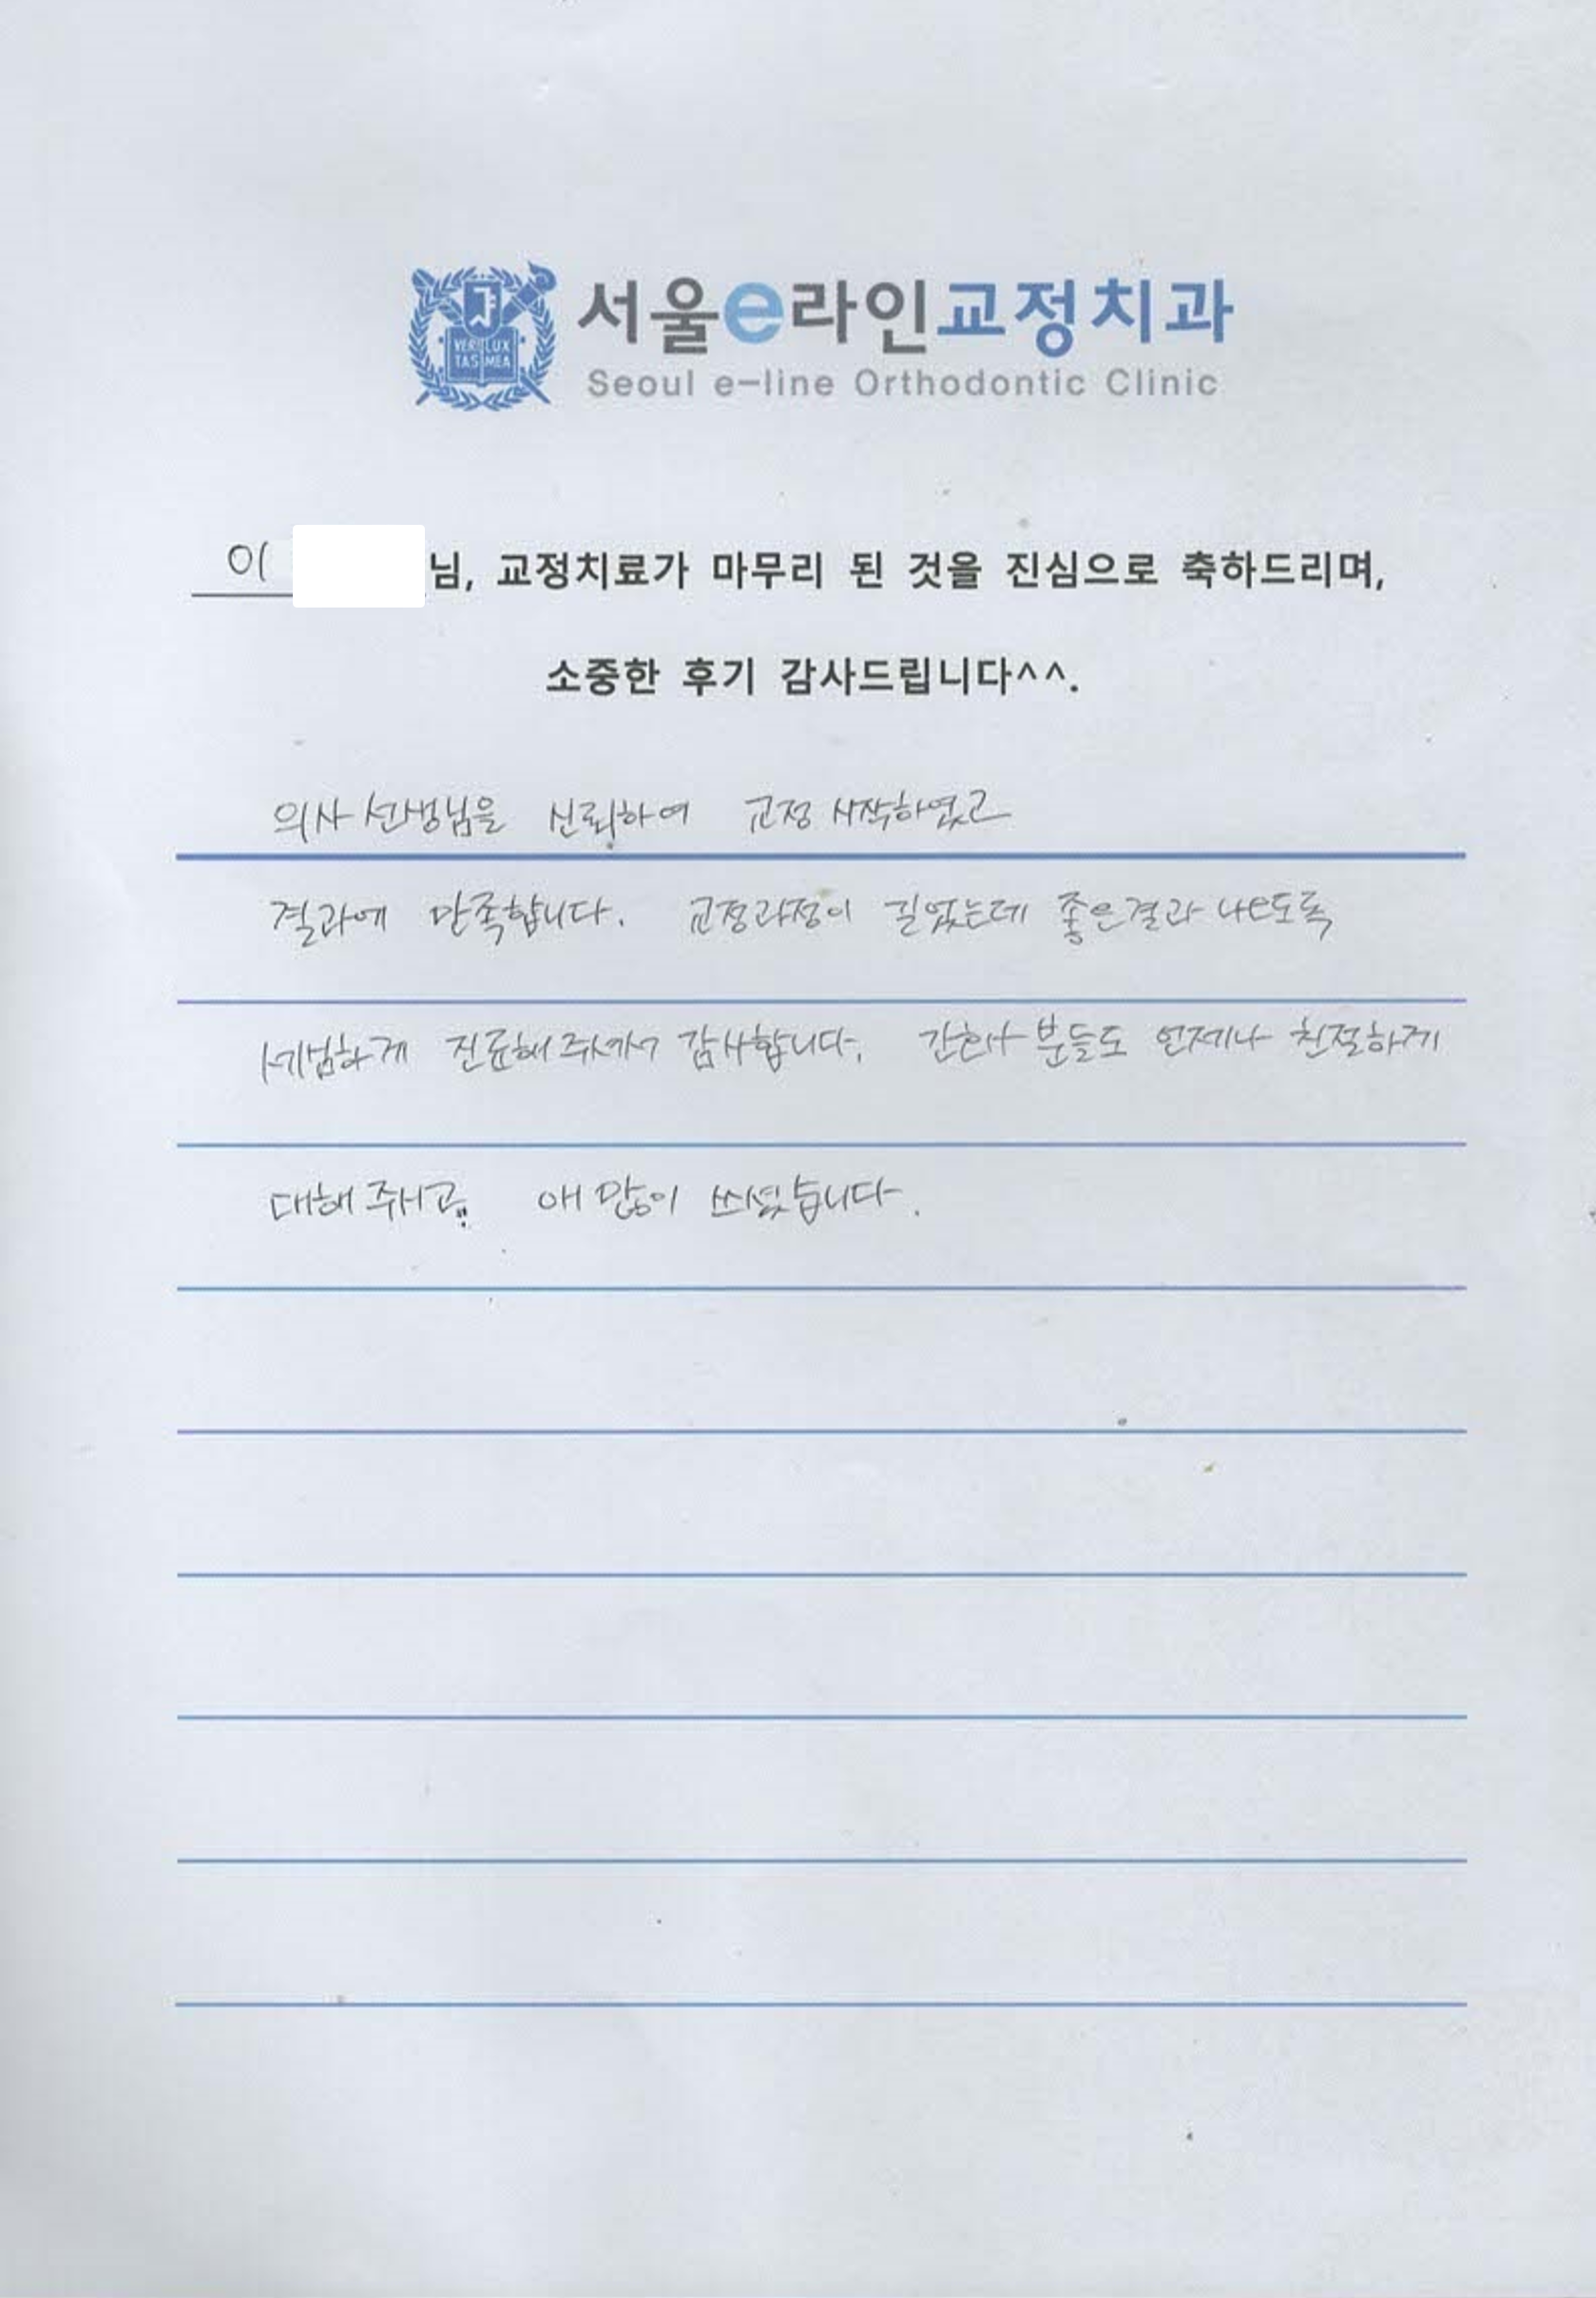 VERI LUX
TAS MEA
서울e라인교정치과
Seoul e-line Orthodontic Clinic
이 님, 교정치료가 마무리 된 것을 진심으로 축하드리며,
소중한 후기 감사드립니다^^.
의사 선생님을 신뢰하여 교정 시작하였고
결과에 만족합니다. 교정과정이 길었는데 좋은결과 나오도록
세심하게 진료해주셔서 감사합니다. 간호사분들도 언제나 친절하게
대해 주시고 애 많이 쓰셨습니다.